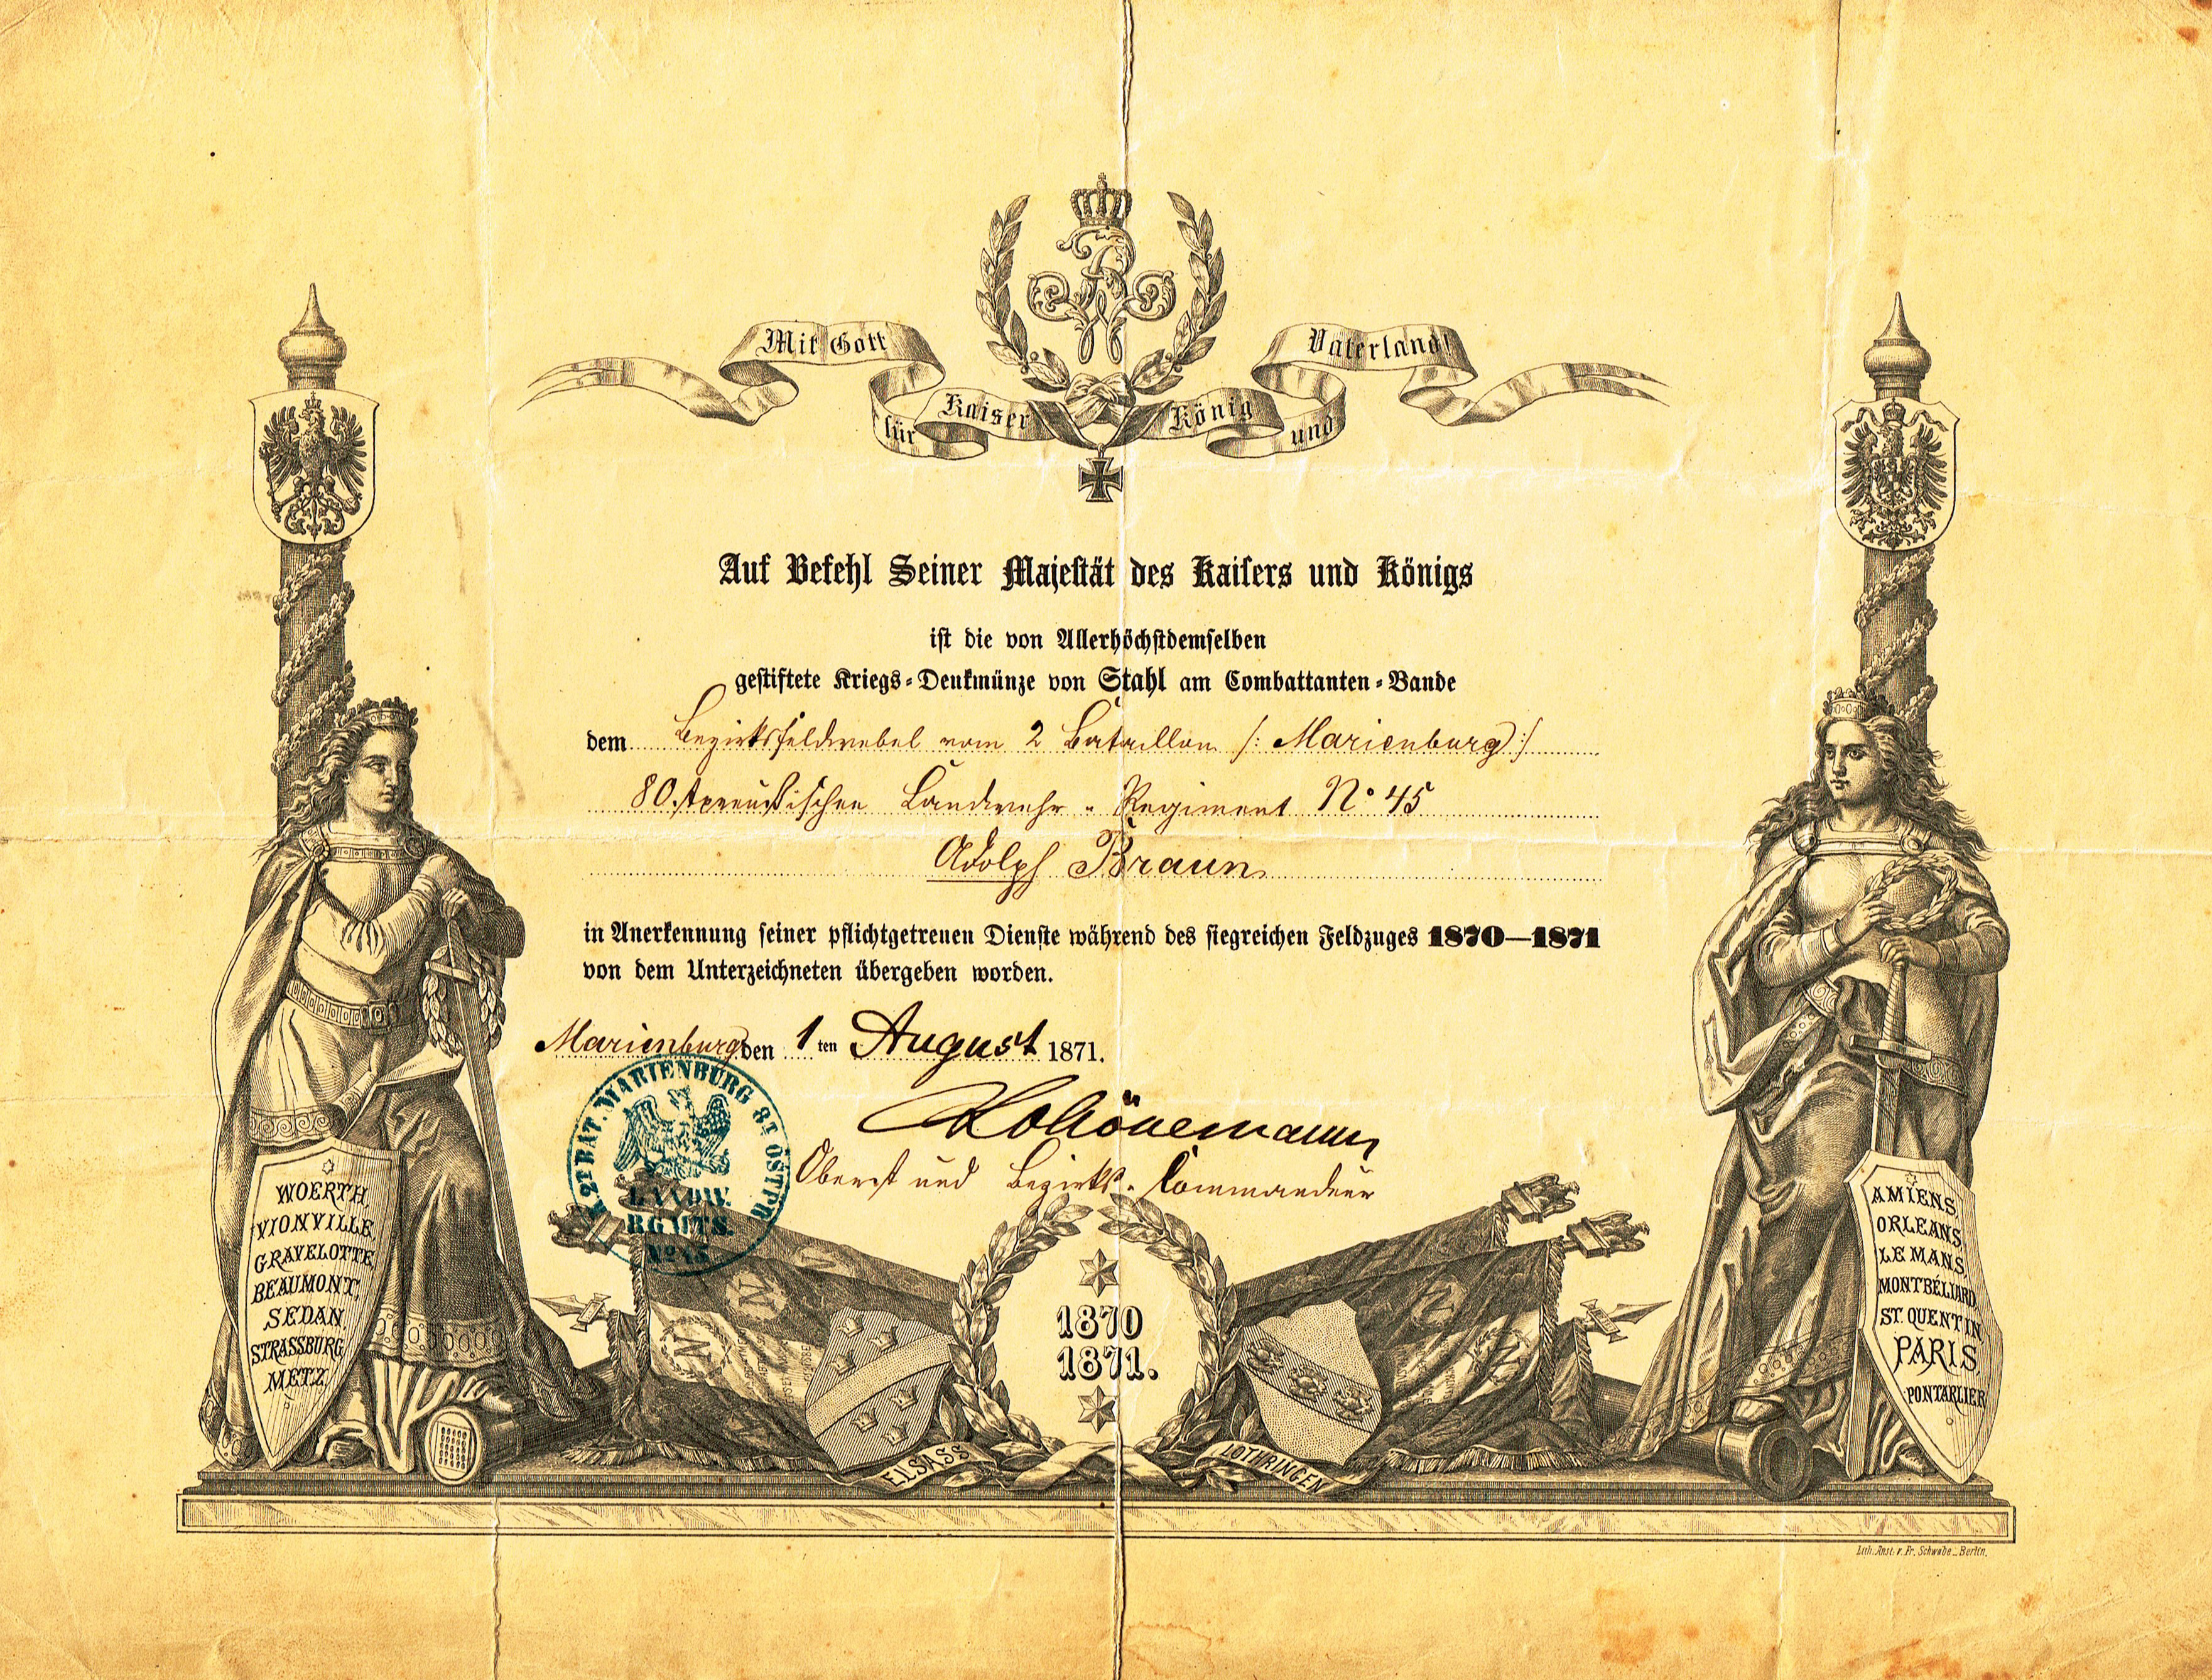 Mit Gott für Kaiser König und Vaterland!
Auf Befehl Seiner Majestät des Kaisers und Königs
ist die von Allerhöchstdemselben
gestiftete Kriegs-Denkmünze von Stahl am Combattanten-Bande
dem Bezirksfeldwebel vom 2 Bataillon /: Marienburg :/
8 Ostpreußischen Landwehr-Regiment No 45
Adolph Braun
in Anerkennung seiner pflichtgetreuen Dienste während des siegreichen Feldzuges 1870—1871
von dem Unterzeichneten übergeben worden.
Marienburg den 1ten August 1871.
Oberst und Bezirks-Commandeur
2T BAT. MARIENBURG 8T OSTPR
LANDW.
RGMTS.
No 45
WOERTH
VIONVILLE
GRAVELOTTE
BEAUMONT,
SEDAN
STRASSBURG
METZ
AMIENS,
ORLEANS
LE MANS,
MONTBÉLIARD,
ST. QUENTIN
PARIS,
PONTARLIER
N
N
N
N
1870
1871.
ELSASS
LOTHRINGEN
Lith. Anst. v. Fr. Schwabe_Berlin.